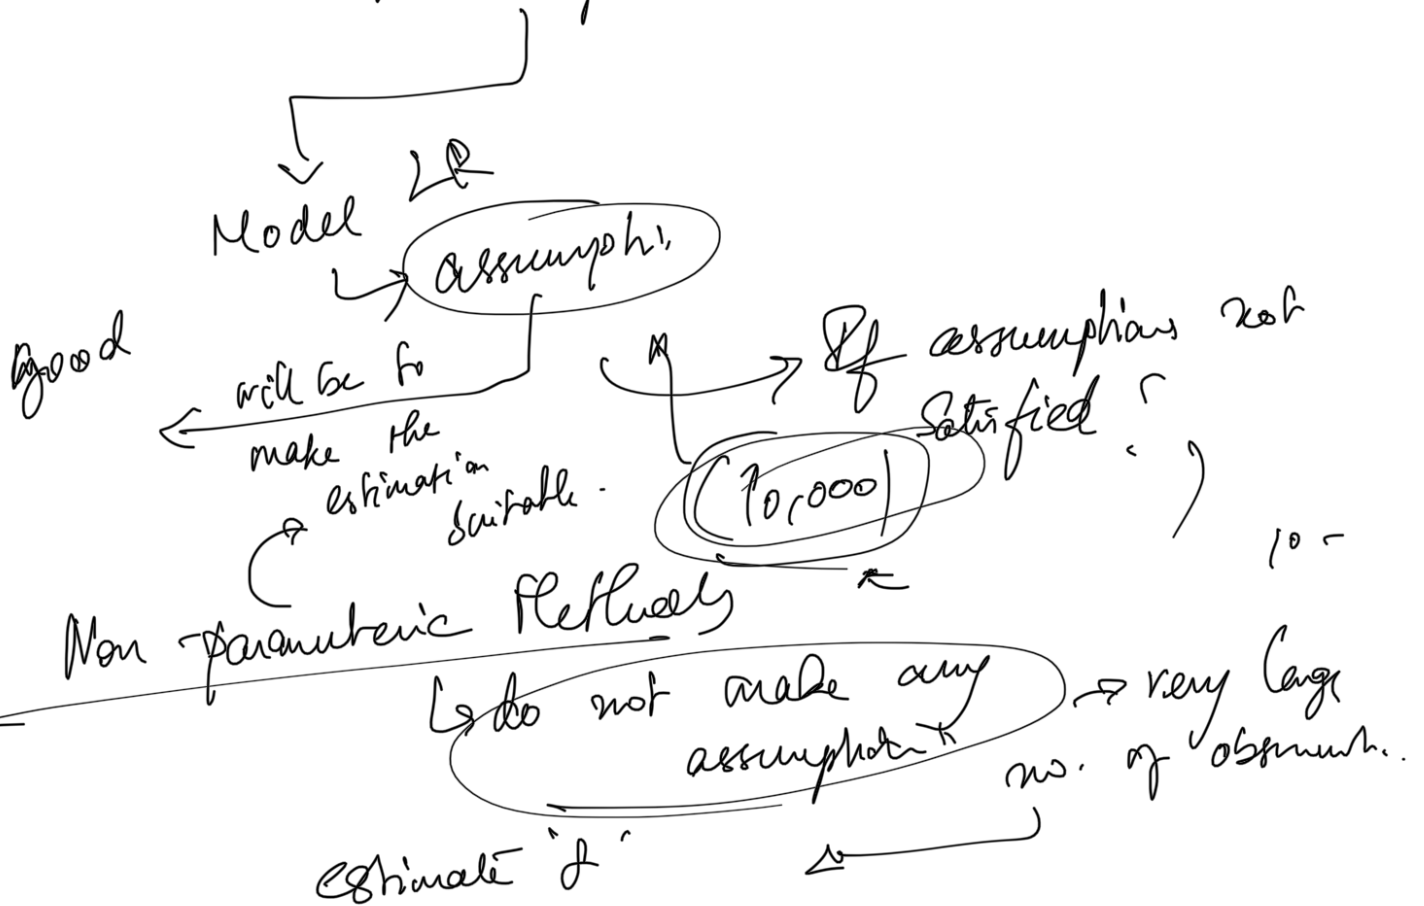 LR
Model
assumpti
good
will be to
make the
estimation
suitable.
If assumptions not
satisfied
(10,000)
10 -
Non-parameteric Methods
do not make any
assumption
very large
no. of
estimate "f"